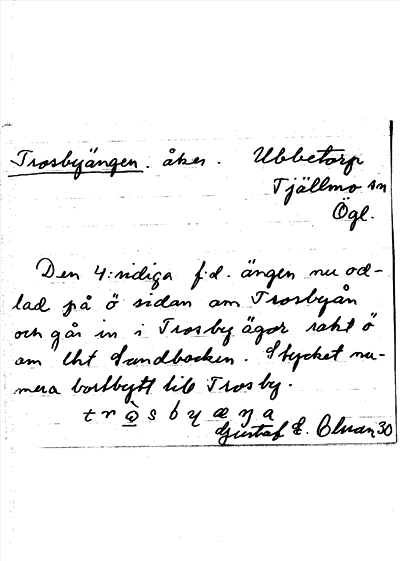 Trosbyängen. åker. Ubbetorp
Tjällmo sn
Ögl.
Den 4:sidiga f.d. ängen nu od-
lad på ö sidan om Trosbyån
och går in i Trosby ägor rakt ö
om Sandbacken. Stycket nu-
mera bortbytt till Trosby.
Gustaf E. 30